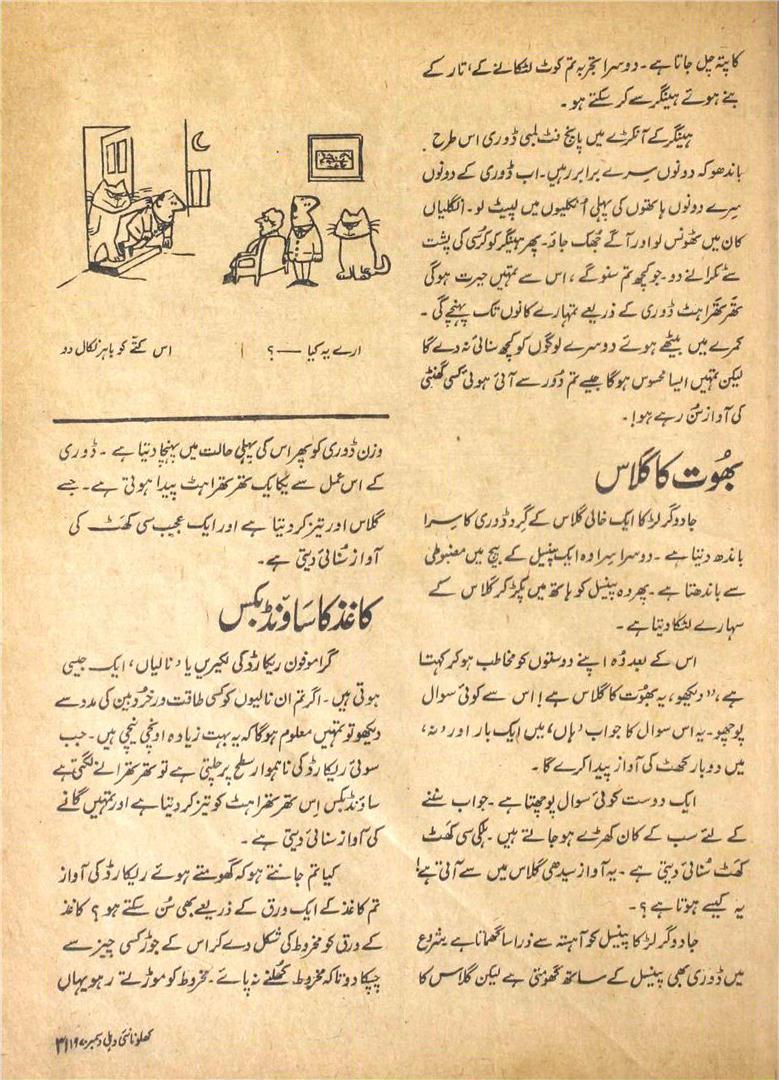 کا پتہ چل جاتا ہے۔ دوسرا تجربہ تم کوٹ لٹکانے کے، تار کے
بنے ہوئے ہینگر سے کر سکتے ہو۔
ہینگر کے آنکڑے میں پانچ فٹ لمبی ڈوری اس طرح
باندھو کہ دونوں سرے برابر رہیں۔ اب ڈوری کے دونوں
سرے دونوں ہاتھوں کی پہلی اُنگلیوں میں لپیٹ لو۔ انگلیاں
کان میں ٹھونس لو اور آگے جھک جاؤ۔ پھر ہینگر کو کرسی کی پشت
سے ٹکرانے دو۔ جو کچھ تم سنو گے، اس سے تمہیں حیرت ہوگی
تھرتھراہٹ ڈوری کے ذریعے تمہارے کانوں تک پہنچے گی۔
کمرے میں بیٹھے ہوئے دوسرے لوگوں کو کچھ سنائی نہ دے گا
لیکن تمہیں ایسا محسوس ہوگا جیسے تم دُور سے آئی ہوئی کسی گھنٹی
کی آواز سُن رہے ہو!۔
بھُوت کا گلاس
جادوگر لڑکا ایک خالی گلاس کے گرد ڈوری کا سرا
باندھ دیتا ہے۔ دوسرا سرا وہ ایک پنسل کے بیچ میں مضبوطی
سے باندھتا ہے۔ پھر وہ پنسل کو ہاتھ میں پکڑ کر گلاس کے
سہارے لٹکا دیتا ہے۔
اس کے بعد وُہ اپنے دوستوں کو مخاطب ہو کر کہتا
ہے، ”دیکھو، یہ بھُوت کا گلاس ہے! اس سے کوئی سوال
پوچھو۔ یہ اس سوال کا جواب ’ہاں‘ میں ایک بار اور ’نہ‘
میں دو بار کھٹ کی آواز پیدا کرے گا۔
ایک دوست کوئی سوال پوچھتا ہے۔ جواب سُننے
کے لئے سب کے کان کھڑے ہو جاتے ہیں۔ ہلکی سی کھَٹ
کھَٹ سُنائی دیتی ہے۔ یہ آواز سیدھی گلاس میں سے آتی ہے!
یہ کیسے ہوتا ہے؟۔
جادوگر لڑکا پنسل کو آہستہ سے ذرا سا گھماتا ہے شروع
میں ڈوری بھی پنسل کے ساتھ گھومتی ہے لیکن گلاس کا
ارے یہ کیا — ؟
اس کتّے کو باہر نکال دو
وزن ڈوری کو پھر اس کی پہلی حالت میں پہنچا دیتا ہے۔ ڈوری
کے اس عمل سے یکایک تھرتھراہٹ پیدا ہوتی ہے۔ جسے
گلاس اور تیز کر دیتا ہے اور ایک عجیب سی کھَٹ کی
آواز سُنائی دیتی ہے۔
کاغذ کا ساؤنڈ بکس
گراموفون ریکارڈ کی لکیریں یا ’نالیاں‘ ایک جیسی
ہوتی ہیں۔ اگر تم ان نالیوں کو کسی طاقت ور خُردبین کی مدد سے
دیکھو تو تمہیں معلوم ہوگا کہ یہ بہت زیادہ اونچی نیچی ہیں۔ جب
سوئی ریکارڈ کی ناہموار سطح پر چلتی ہے تو تھرتھرانے لگتی ہے
ساؤنڈ بکس اِس تھرتھراہٹ کو تیز کر دیتا ہے اور تمہیں گانے
کی آواز سنائی دیتی ہے۔
کیا تم جانتے ہو کہ گھومتے ہوئے ریکارڈ کی آواز
تم کاغذ کے ایک ورق کے ذریعے بھی سُن سکتے ہو؟ کاغذ
کے ورق کو مخروط کی شکل دے کر اس کے جوڑ کسی چیز سے
چپکا دو تاکہ مخروط کھُلنے نہ پائے۔ مخروط کو موڑتے رہو یہاں
کھلونا نئی دہلی دسمبر ۱۹۷۰ ۳۱